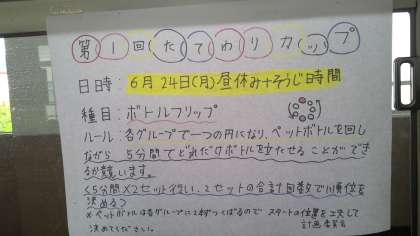 第1回たてわりカップ
日時：6月24日(月)昼休み+そうじ時間
種目：ボトルフリップ
ルール：各グループで一つの円になり、ペットボトルを回し
ながら 5分間でどれだけボトルを立たせることができ
るか競います。
<5分間×2セット行い、2セットの合計回数で順位を
決める>
*ペットボトルは各グループに2本ずつくばるので スタートの位置を工夫して
決めてください。 計画委員会